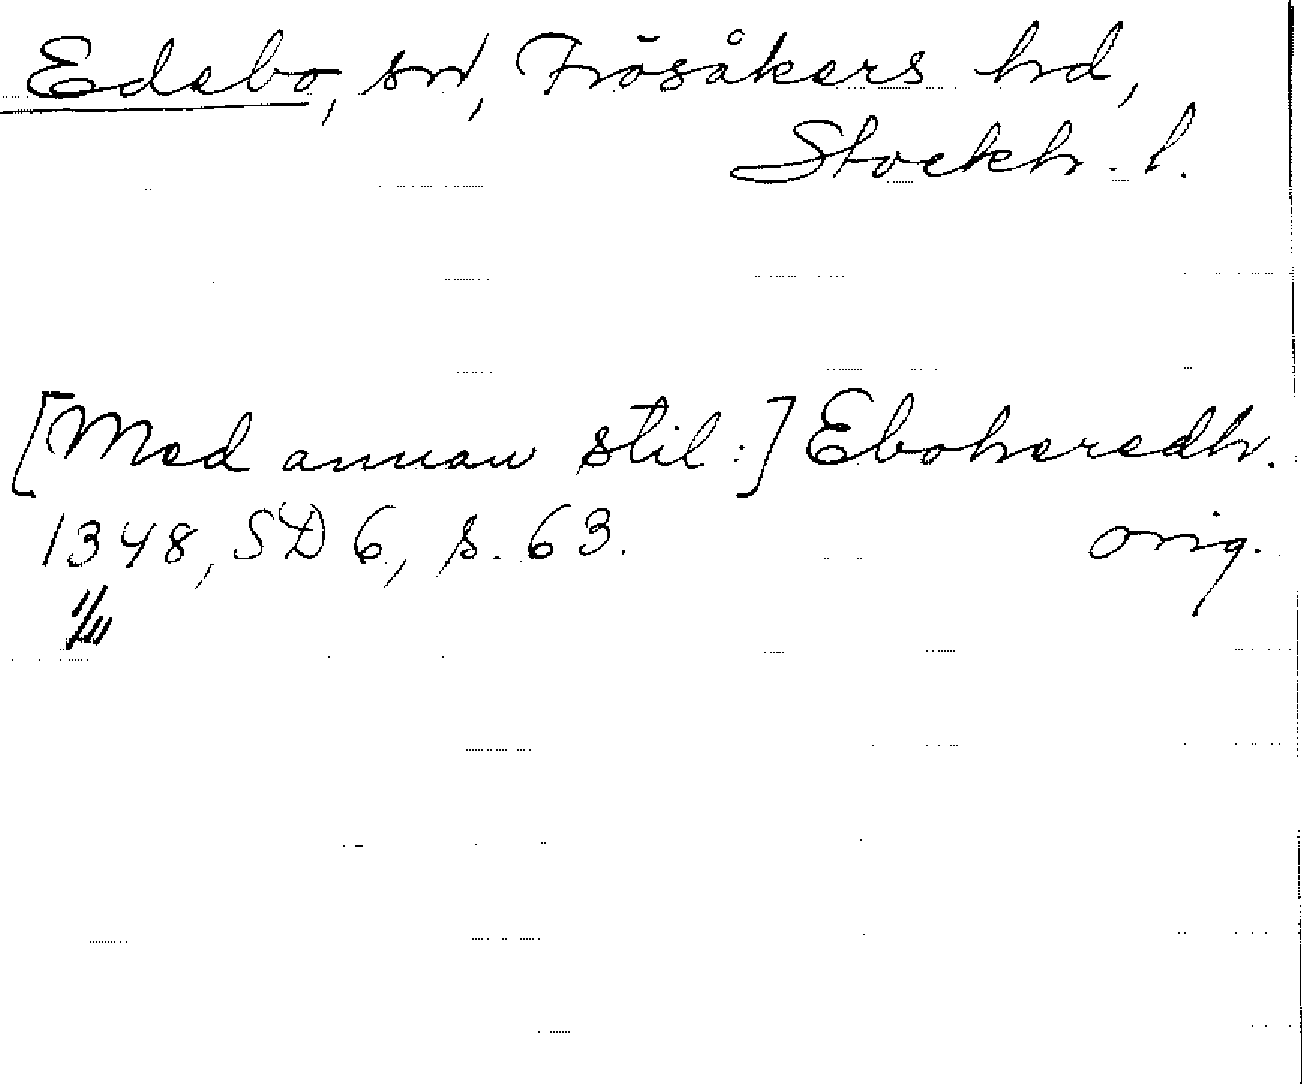 Edebo, sn, Frösåkers hd,
Stockh. l.
[Med annan stil:] Eboheredh.
1348, SD 6, s. 63. orig.